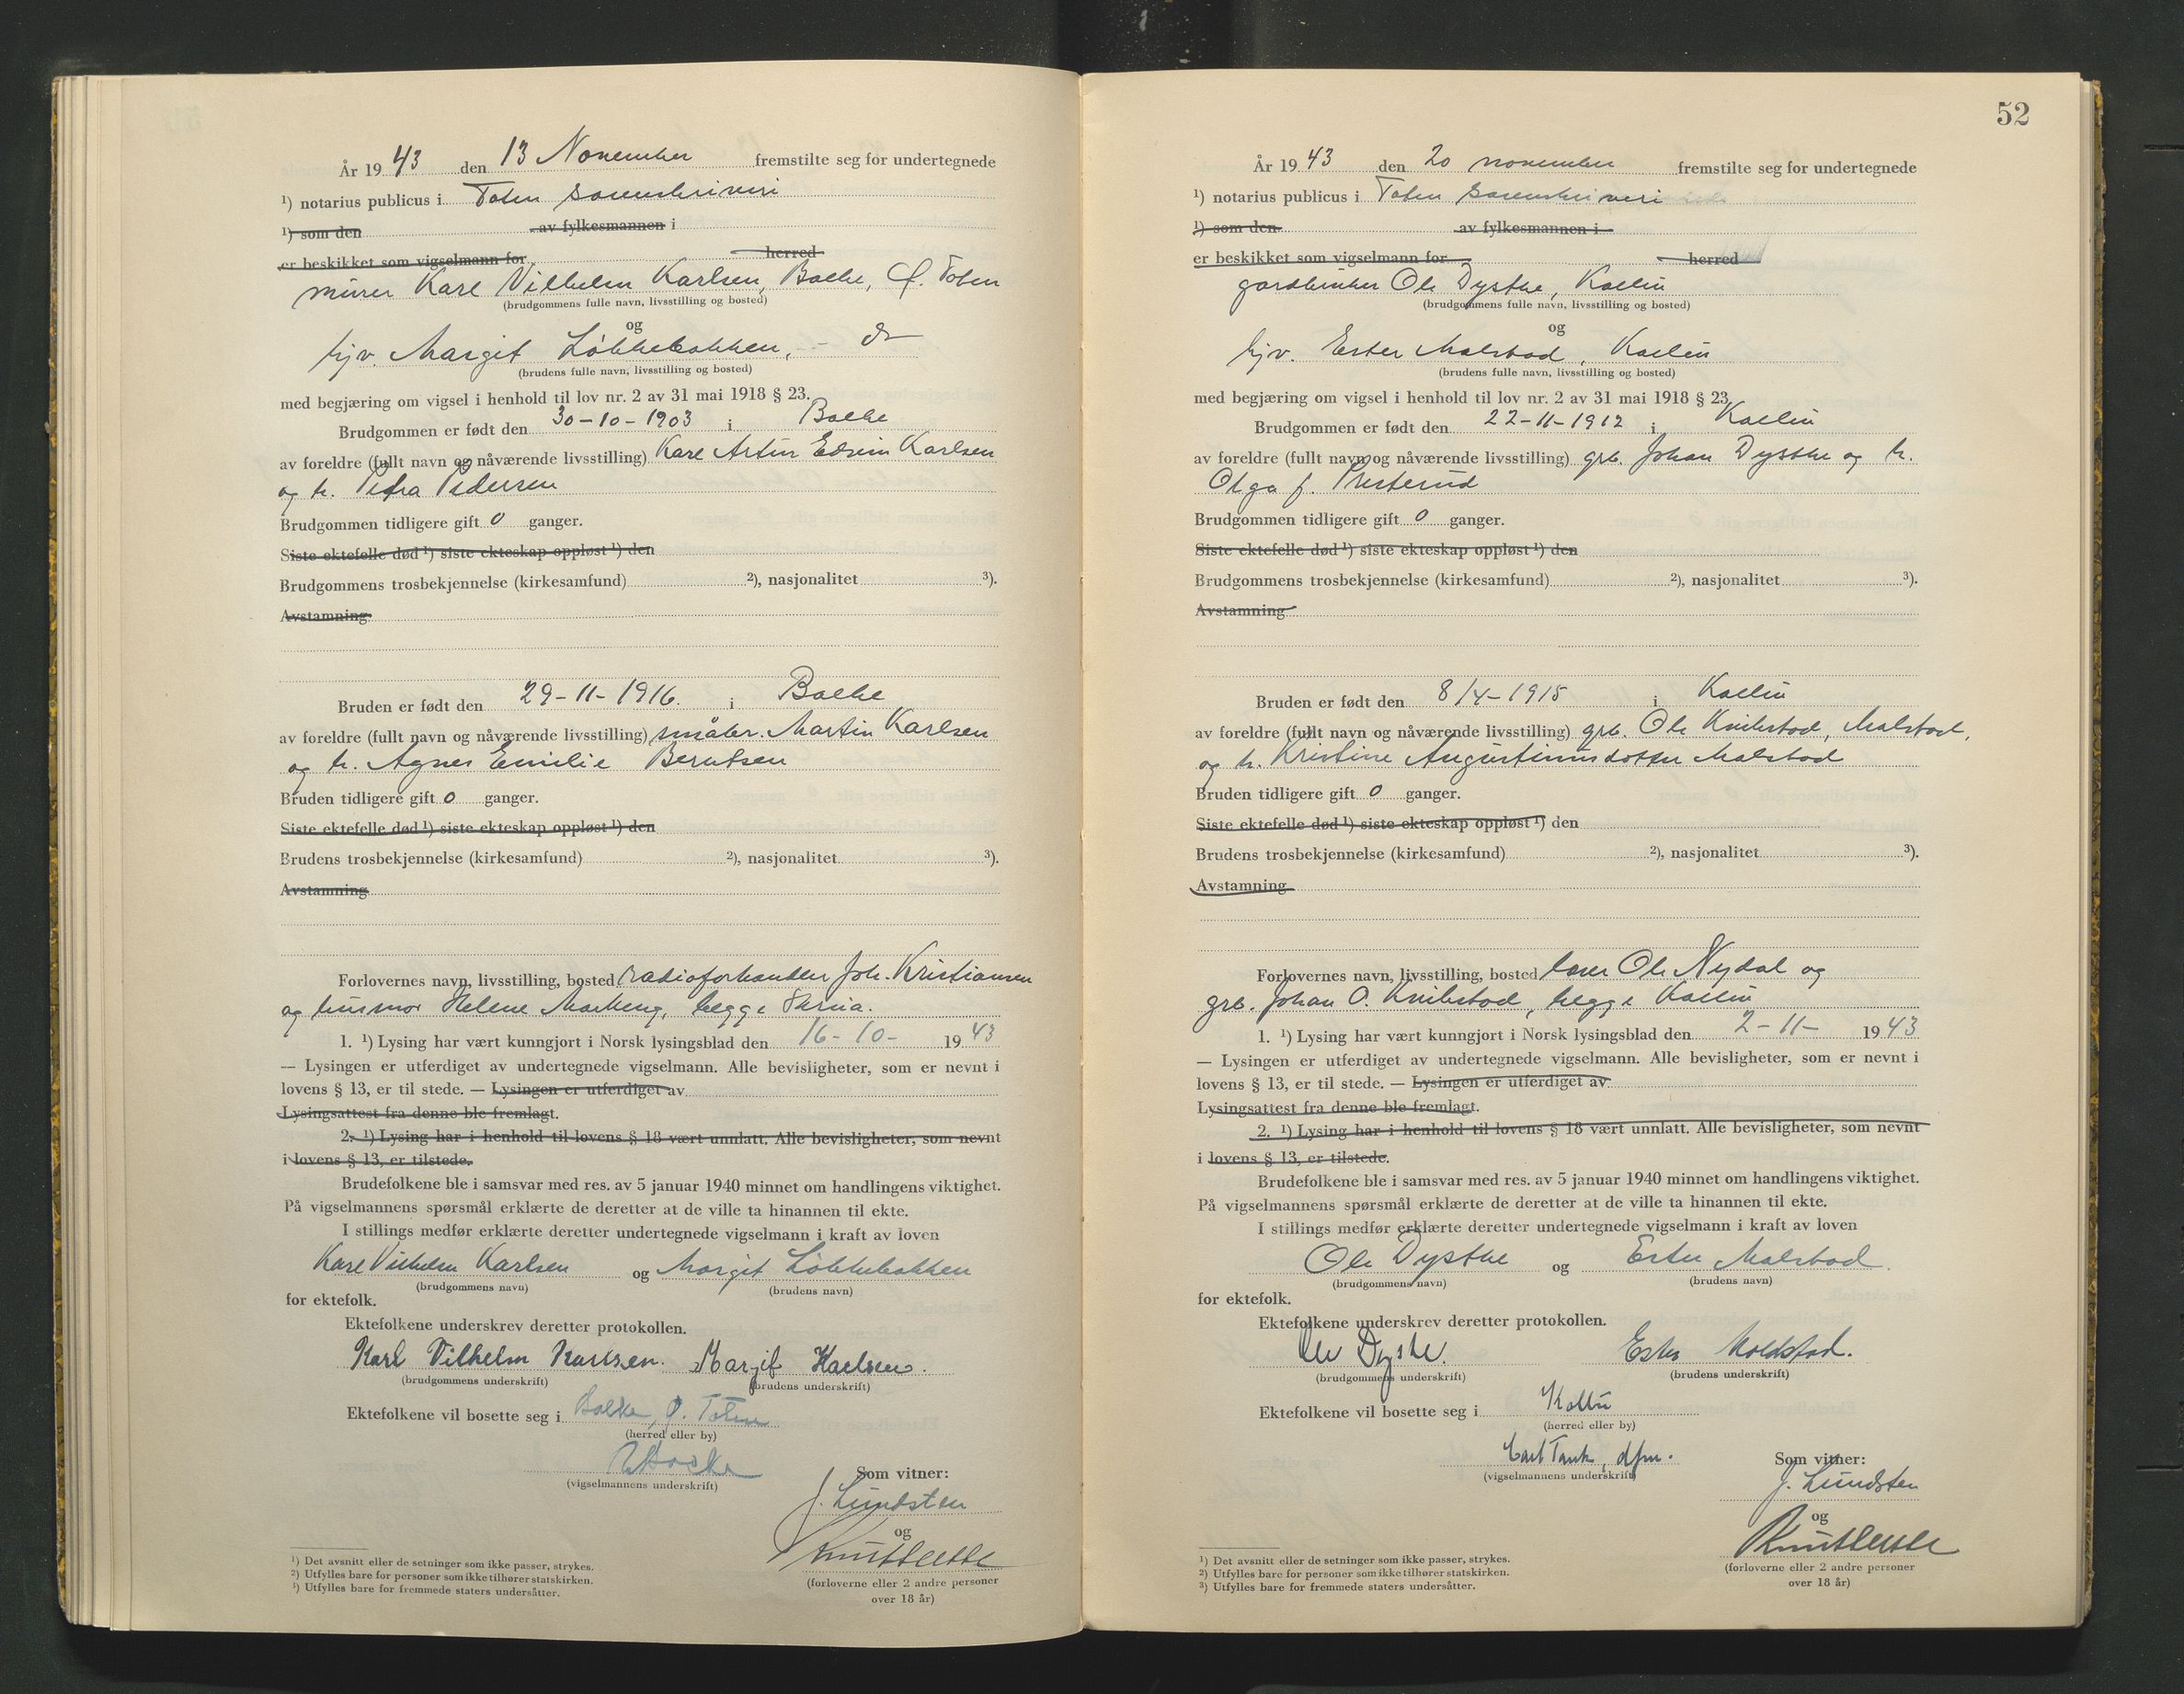 År 19 43 den 13 November fremstilte seg for undertegnede
¹) notarius publicus i Toten sorenskriveri
¹) som den av fylkesmannen i
er beskikket som vigselmann for herred
murer Karl Vilhelm Karlsen, Balke, Ø. Toten
(brudgommens fulle navn, livsstilling og bosted)
og
hjv. Margit Løkkebakken, - do
(brudens fulle navn, livsstilling og bosted)
med begjæring om vigsel i henhold til lov nr. 2 av 31 mai 1918 § 23.
Brudgommen er født den 30-10-1903 i Balke
av foreldre (fullt navn og nåværende livsstilling) Karl Artur Edvin Karlsen
og h. Petra Pedersen
Brudgommen tidligere gift 0 ganger.
Siste ektefelle død ¹) siste ekteskap oppløst ¹) den
Brudgommens trosbekjennelse (kirkesamfund) ²), nasjonalitet ³).
Avstamning
Bruden er født den 29-11-1916. i Balke
av foreldre (fullt navn og nåværende livsstilling) småbr. Martin Karlsen
og h. Agnes Emilie Berntsen
Bruden tidligere gift 0 ganger.
Siste ektefelle død ¹) siste ekteskap oppløst ¹) den
Brudens trosbekjennelse (kirkesamfund) ²), nasjonalitet ³).
Avstamning
Forlovernes navn, livsstilling, bosted radioforhandler Joh. Kristiansen
og husmor Helene Markeng, begge Skreia.
1. ¹) Lysing har vært kunngjort i Norsk lysingsblad den 16-10- 19 43
— Lysingen er utferdiget av undertegnede vigselmann. Alle bevisligheter, som er nevnt i
lovens § 13, er til stede. — Lysingen er utferdiget av
Lysingsattest fra denne ble fremlagt.
2. ¹) Lysing har i henhold til lovens § 18 vært unnlatt. Alle bevisligheter, som nevnt
i lovens § 13, er tilstede.
Brudefolkene ble i samsvar med res. av 5 januar 1940 minnet om handlingens viktighet.
På vigselmannens spørsmål erklærte de deretter at de ville ta hinannen til ekte.
I stillings medfør erklærte deretter undertegnede vigselmann i kraft av loven
Karl Vilhelm Karlsen og Margit Løkkebakken
(brudgommens navn) (brudens navn)
for ektefolk.
Ektefolkene underskrev deretter protokollen.
Karl Vilhelm Karlsen. Margit Karlsen.
(brudgommens underskrift) (brudens underskrift)
Ektefolkene vil bosette seg i Balke, Ø. Toten
(herred eller by)
(vigselmannens underskrift)
Som vitner:
J. Lundsten
og
(forloverne eller 2 andre personer
over 18 år)
¹) Det avsnitt eller de setninger som ikke passer, strykes.
²) Utfylles bare for personer som ikke tilhører statskirken.
³) Utfylles bare for fremmede staters undersåtter.
52
År 19 43 den 20 november fremstilte seg for undertegnede
¹) notarius publicus i Toten sorenskriveri
¹) som den av fylkesmannen i
er beskikket som vigselmann for herred
gardbruker Ole Dysthe, Kolbu
(brudgommens fulle navn, livsstilling og bosted)
og
hjv. Ester Malstad, Kolbu
(brudens fulle navn, livsstilling og bosted)
med begjæring om vigsel i henhold til lov nr. 2 av 31 mai 1918 § 23.
Brudgommen er født den 22-11-1912 i Kolbu
av foreldre (fullt navn og nåværende livsstilling) grb. Johan Dysthe og h.
Olga f. Presterud
Brudgommen tidligere gift 0 ganger.
Siste ektefelle død ¹) siste ekteskap oppløst ¹) den
Brudgommens trosbekjennelse (kirkesamfund) ²), nasjonalitet ³).
Avstamning
Bruden er født den 8/4-1915 i Kolbu
av foreldre (fullt navn og nåværende livsstilling) grb. Ole Knibstad, Malstad,
og h. Kristine Augustinusdotter Malstad
Bruden tidligere gift 0 ganger.
Siste ektefelle død ¹) siste ekteskap oppløst ¹) den
Brudens trosbekjennelse (kirkesamfund) ²), nasjonalitet ³).
Avstamning
Forlovernes navn, livsstilling, bosted lærer Ole Nydal og
grb. Johan O. Knibstad, begge Kolbu
1. ¹) Lysing har vært kunngjort i Norsk lysingsblad den 2-11- 19 43
— Lysingen er utferdiget av undertegnede vigselmann. Alle bevisligheter, som er nevnt i
lovens § 13, er til stede. — Lysingen er utferdiget av
Lysingsattest fra denne ble fremlagt.
2. ¹) Lysing har i henhold til lovens § 18 vært unnlatt. Alle bevisligheter, som nevnt
i lovens § 13, er tilstede.
Brudefolkene ble i samsvar med res. av 5 januar 1940 minnet om handlingens viktighet.
På vigselmannens spørsmål erklærte de deretter at de ville ta hinannen til ekte.
I stillings medfør erklærte deretter undertegnede vigselmann i kraft av loven
Ole Dysthe og Ester Malstad.
(brudgommens navn) (brudens navn)
for ektefolk.
Ektefolkene underskrev deretter protokollen.
Ole Dyste. Ester Moldstad.
(brudgommens underskrift) (brudens underskrift)
Ektefolkene vil bosette seg i Kolbu
(herred eller by)
Carl Tank, dfm.
(vigselmannens underskrift)
Som vitner:
J. Lundsten
og
(forloverne eller 2 andre personer
over 18 år)
¹) Det avsnitt eller de setninger som ikke passer, strykes.
²) Utfylles bare for personer som ikke tilhører statskirken.
³) Utfylles bare for fremmede staters undersåtter.